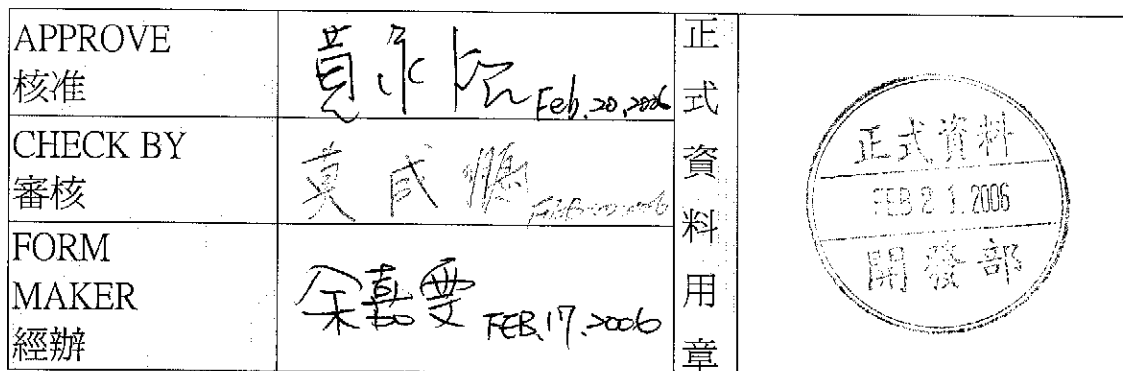 APPROVE
核准
Feb.20,2006
CHECK BY
審核
FEB.20.2006
FORM
MAKER
經辦
余嘉雯 FEB.17.2006
正式資料用章
正式資料
FEB 21.2006
開發部